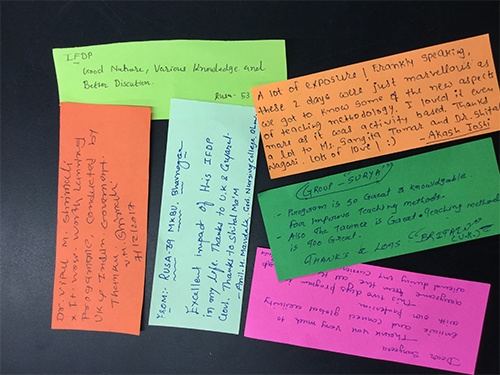 IFDP
Good Nature, Various Knowledge and
Better Discution.
Rusa- 53
A lot of exposure! Frankly speaking,
these 2 days were just marvellous as
we got to know some of the new aspects
of teaching methodology. I loved it even
more as it was activity based. Thanks
a lot to Ms. Sangita Tomar and Dr. Shital
Nagari. Lot of love! :)
Akash Joshi
Dr. Vipul M
It was worth Learning
Programme, Conducted by
UK & Indian Government
Thanks,
7/12/2017
From:- RUSA-IA MKBU. Bhavnagar
Excellent Impact of this IFDP
in my Life. Thanks to U.K & Gujarat
Govt. Thanks to Shital Ma'M
Govt. Nursing College
GROUP - "SURYA"
- Program is so Great & knowledgable.
For Improve Teaching methods.
- Also the Trainer is Great & Teaching methods
is too Great.
THANKS A LOTS "BRITAIN" (U.K.)
Dear Sangeeta
Thank you very much to
and connect global creativity
with our profession
This two days program